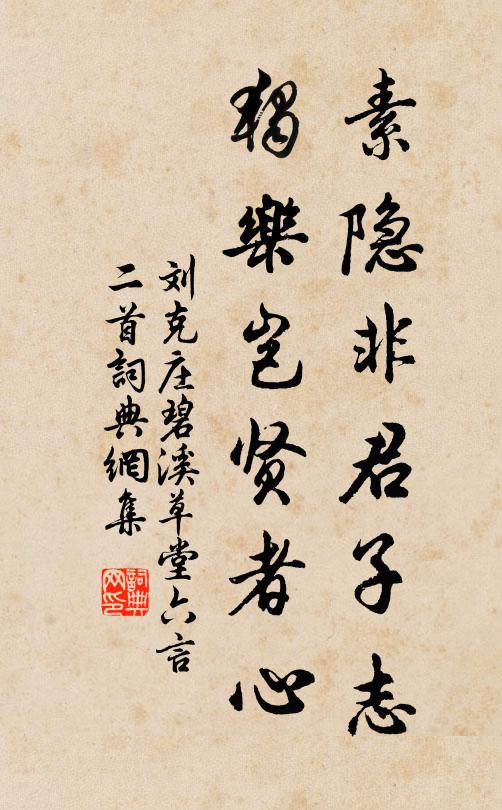 素隐非君子志
独樂岂贤者心
刘克庄碧溪草堂六言
二首詞典網集
詞典
网印